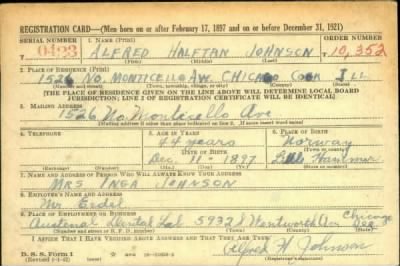 REGISTRATION CARD—(Men born on or after February 17, 1897 and on or before December 31, 1921)
SERIAL NUMBER 1. NAME (Print) ORDER NUMBER
0423 ALFRED HALFTAN JOHNSON 10,352
(First) (Middle) (Last)
2. PLACE OF RESIDENCE (Print)
1526 No. MONTICELLO AV. CHICAGO COOK ILL
(Number and street) (Town, township, village, or city) (County) (State)
[THE PLACE OF RESIDENCE GIVEN ON THE LINE ABOVE WILL DETERMINE LOCAL BOARD
JURISDICTION; LINE 2 OF REGISTRATION CERTIFICATE WILL BE IDENTICAL]
3. MAILING ADDRESS
1526 No Monticello Ave
[Mailing address if other than place indicated on line 2. If same insert word same]
4. TELEPHONE 5. AGE IN YEARS 6. PLACE OF BIRTH
44 years Norway
DATE OF BIRTH (Town or county)
Dec. 11 - 1897
(Exchange) (Number) (Mo.) (Day) (Yr.) (State or country)
7. NAME AND ADDRESS OF PERSON WHO WILL ALWAYS KNOW YOUR ADDRESS
MRS INGA JOHNSON
8. EMPLOYER'S NAME AND ADDRESS
Mr.
9. PLACE OF EMPLOYMENT OR BUSINESS
Dental Lab 5932 S Wentworth Av Chicago
(Number and street or R. F. D. number) (Town) (County) (State)
I AFFIRM THAT I HAVE VERIFIED ABOVE ANSWERS AND THAT THEY ARE TRUE.
D. S. S. Form 1
Alfred H Johnson